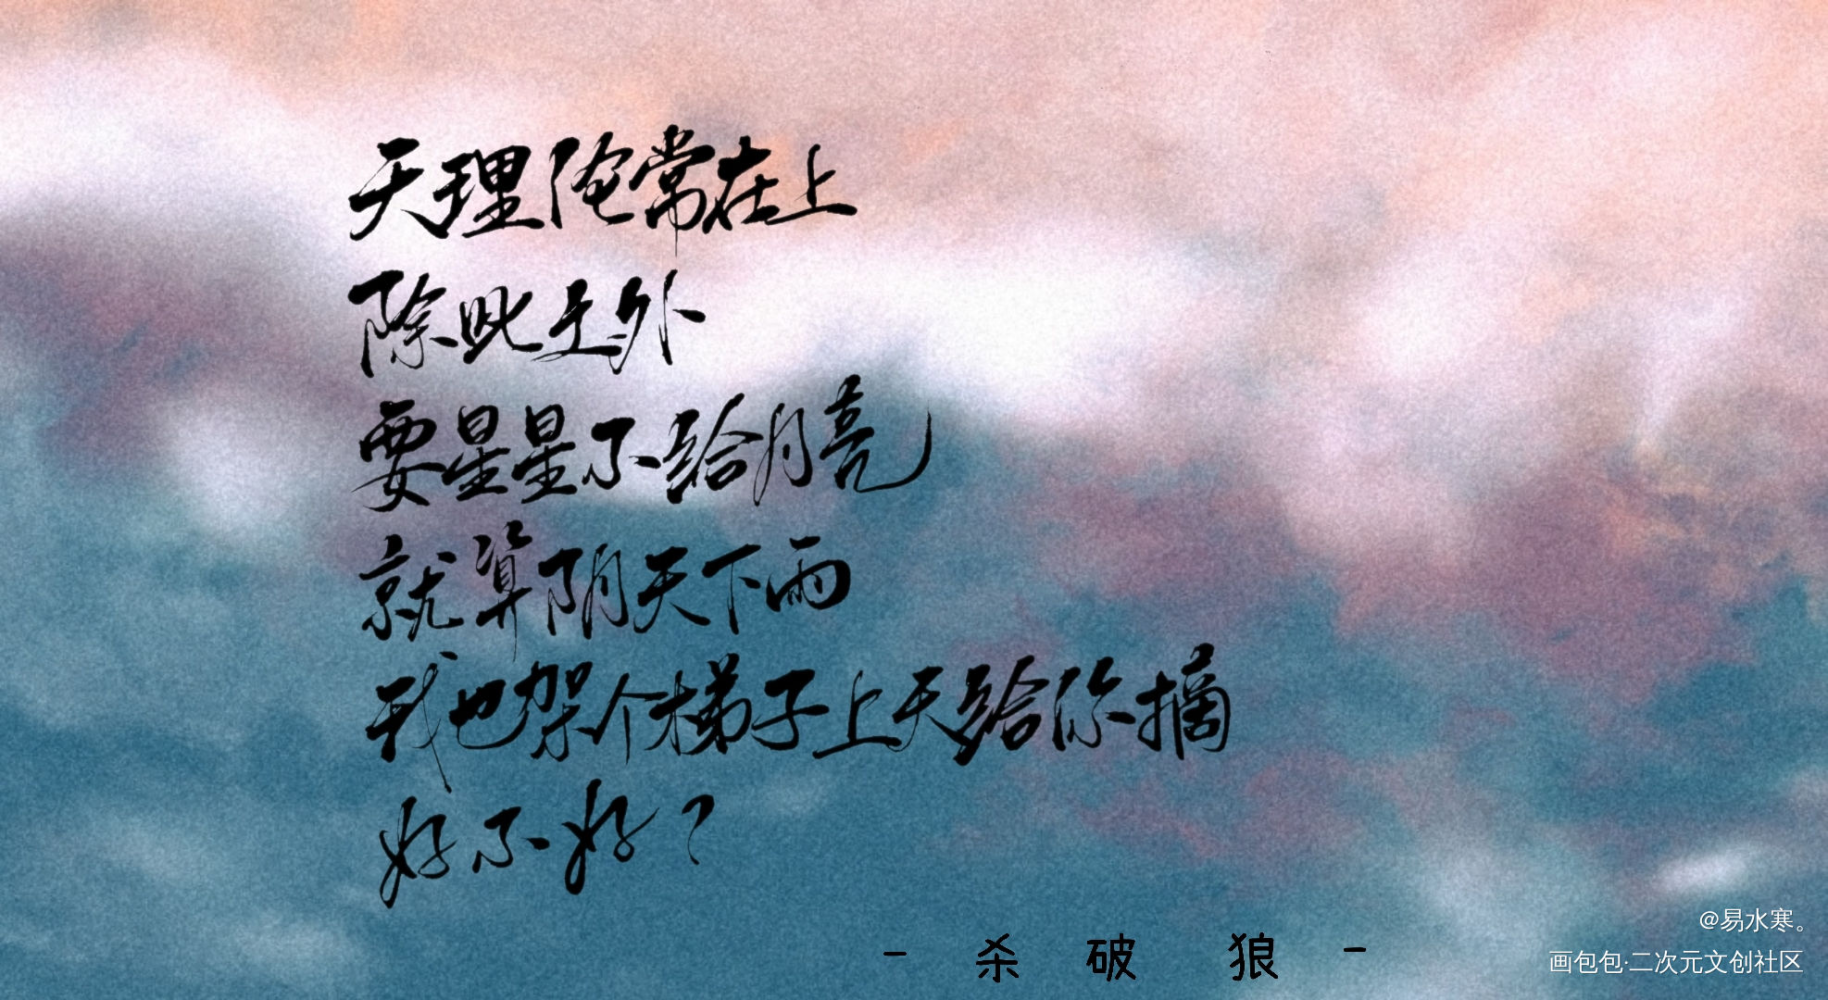 天理伦常在上
除此之外
要星星不给月亮
就算阴天下雨
我也架个梯子上天给你摘
好不好？
- 杀破狼 -
@易水寒。
画包包·二次元文创社区